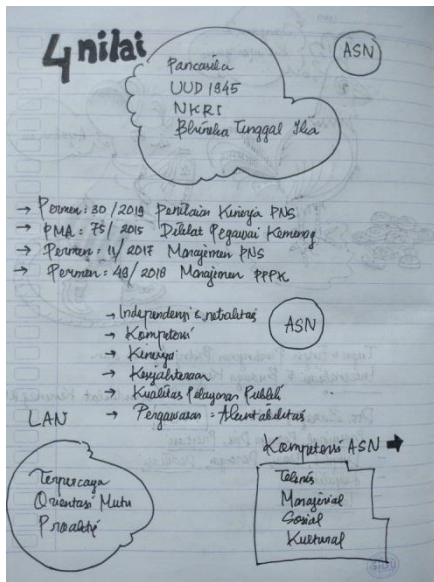 4 nilai
ASN
Pancasila
UUD 1945
NKRI
Bhineka Tunggal Ika
→ Permen : 30 / 2019 Penilaian Kinerja PNS
→ PMA : 75 / 2015 Diklat Pegawai Kemenag
→ Permen : 11 / 2017 Manajemen PNS
→ Permen : 49 / 2018 Manajemen PPPK
→ Independensi & netralitas
→ Kompetensi
→ Kinerja
→ Kesejahteraan
→ Kualitas Pelayanan Publik
→ Pengawasan = Akuntabilitas
ASN
LAN
Terpercaya
Orientasi Mutu
Proaktif
Kompetensi ASN →
Teknis
Manajerial
Sosial
Kultural